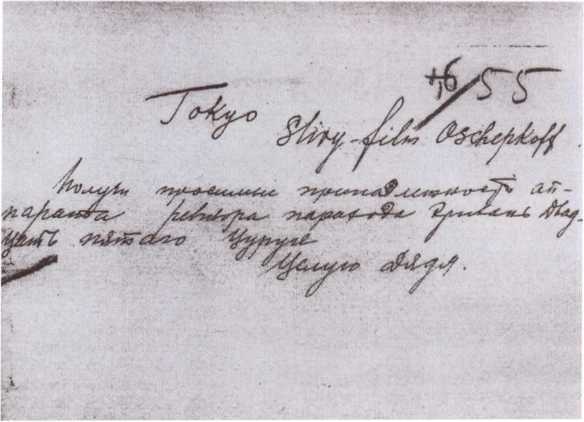 55
Tokyo
Slivy-film Oschepkoff.
Получи посылкы принадлежность ап-
парата ревизора парохода Эривань двад-
цать пятаго Цуруге
Целую дядя.